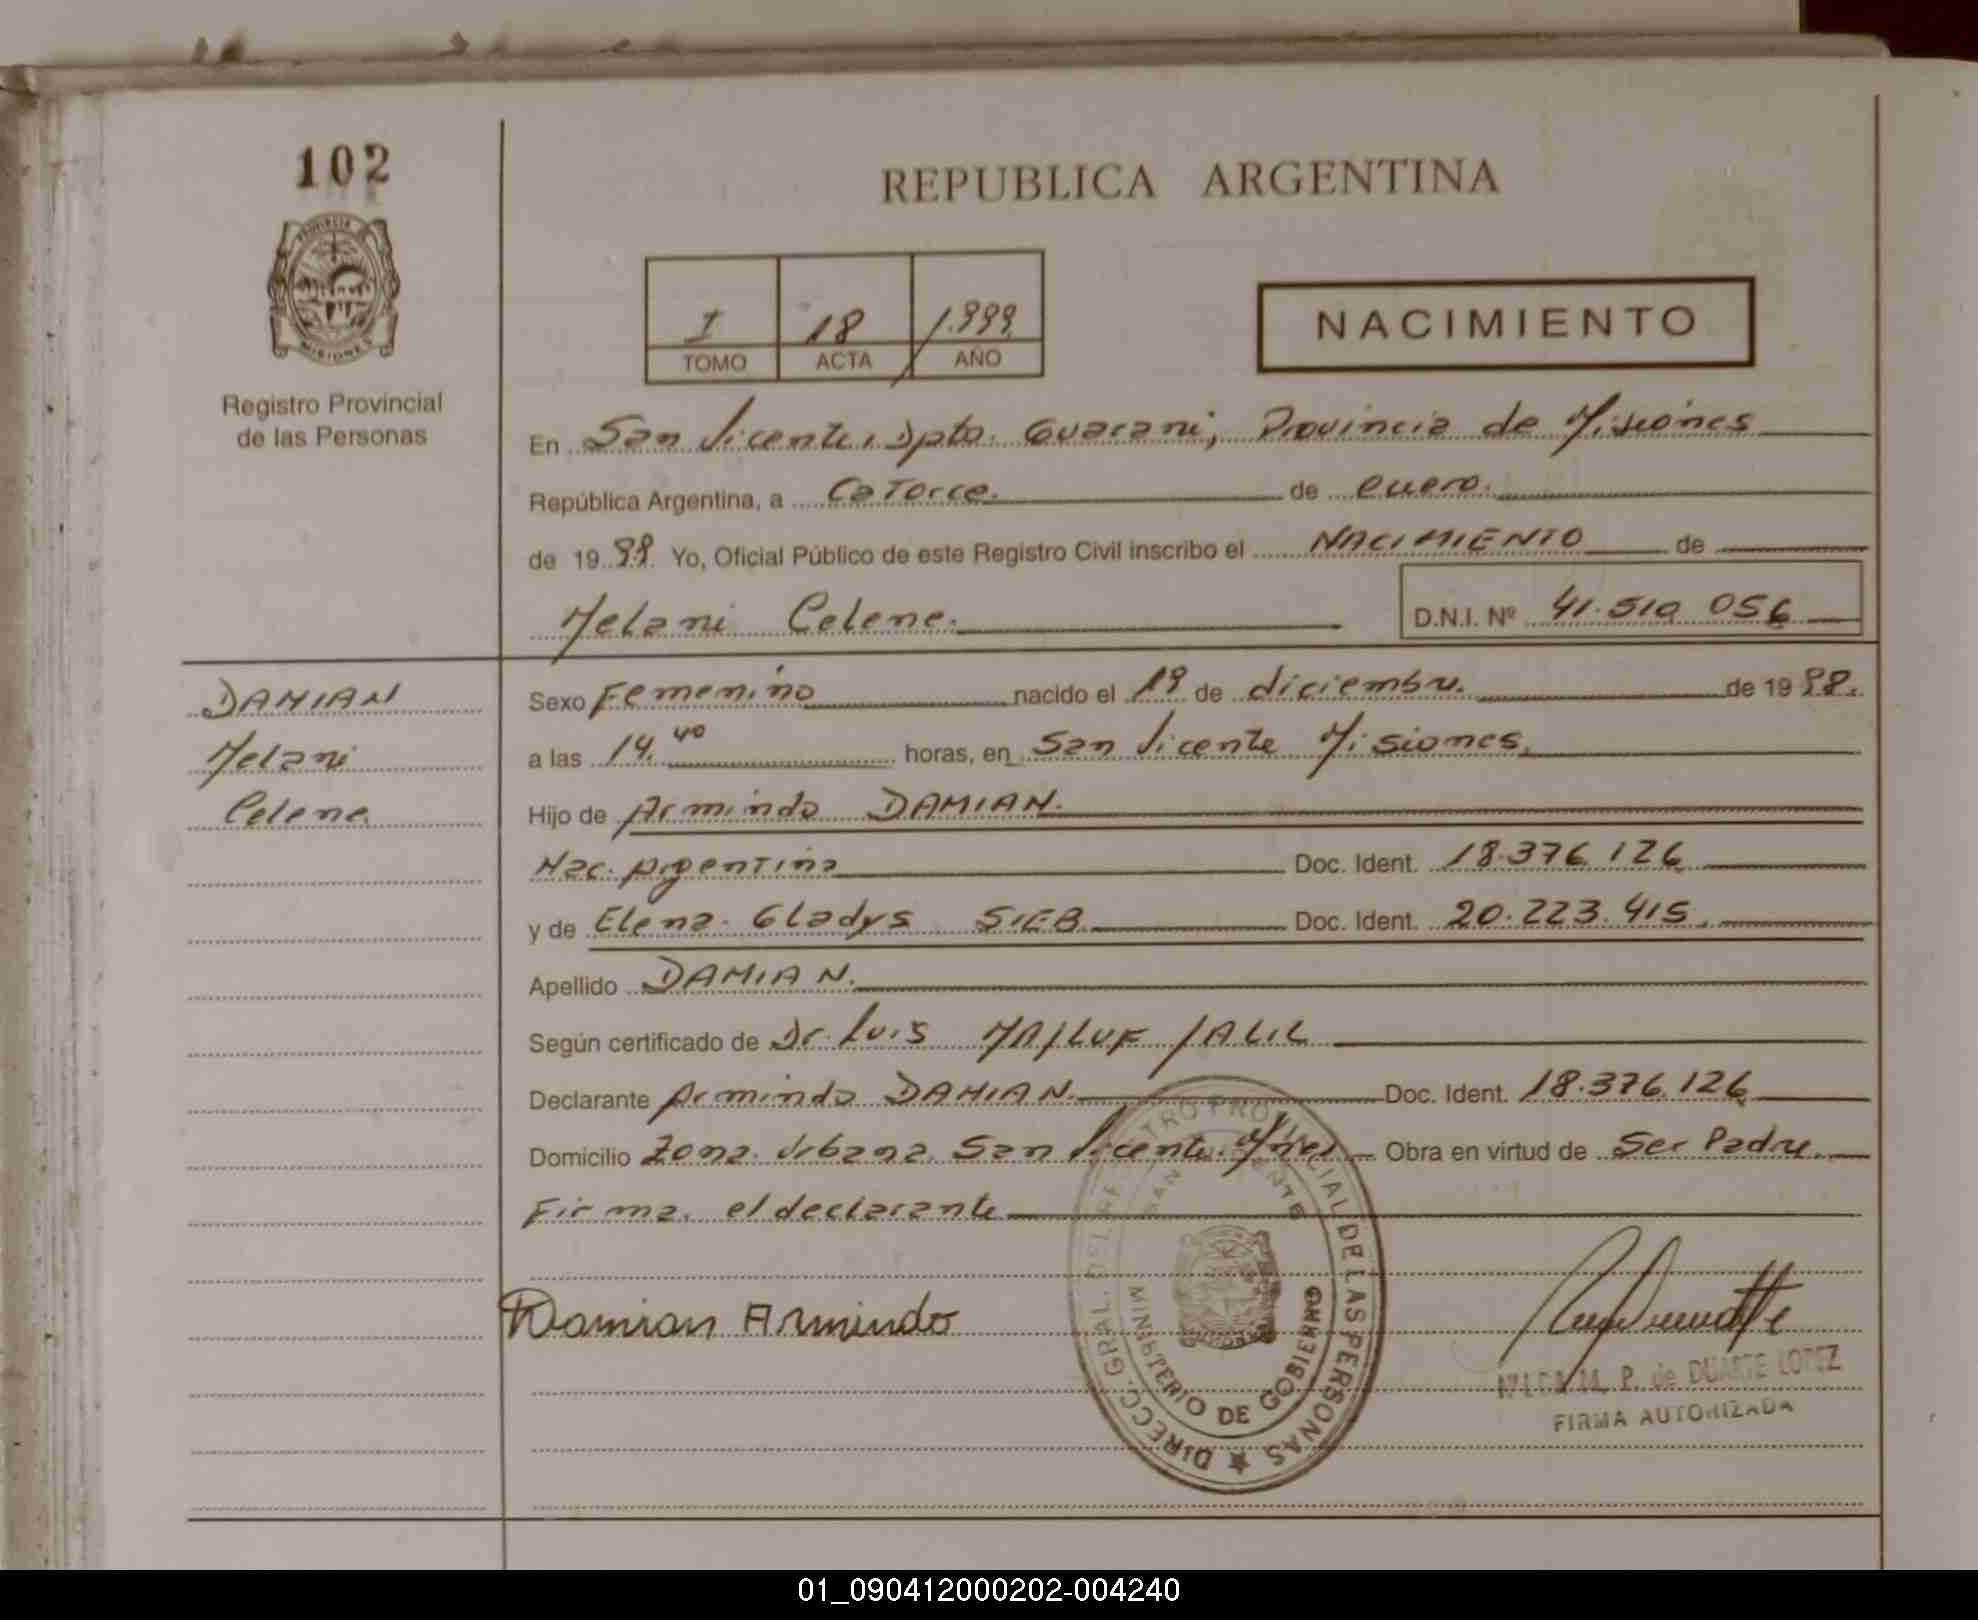 102
PROVINCIA
MISIONES
Registro Provincial
de las Personas
REPUBLICA ARGENTINA
I 18 1.999
TOMO ACTA AÑO
NACIMIENTO
En San Vicente, Dpto. Guarani, Provincia de Misiones
República Argentina, a Catorce. de enero.
de 19 99. Yo, Oficial Público de este Registro Civil inscribo el NACIMIENTO de
Melani Celene. D.N.I. Nº 41.510 056
DAMIAN
Melani
Celene
Sexo Femenino nacido el 19 de diciembre. de 19 98.
a las 14.40 horas, en San Vicente Misiones.
Hijo de Armindo DAMIAN.
Nac. Argentina Doc. Ident. 18.376.126
y de Elena Gladys SIEB. Doc. Ident. 20.223.415.
Apellido DAMIAN.
Según certificado de Dr. Luis MAJLUF JALIL
Declarante Armindo DAMIAN. Doc. Ident. 18.376.126
Domicilio Zona Urbana San Vicente Mnes. Obra en virtud de Ser Padre.
Firma el declarante
Damian Armindo
DIRECC. GRAL. DEL REGISTRO PROVINCIAL DE LAS PERSONAS
SAN VICENTE
MINISTERIO DE GOBIERNO
M. P. de DUARTE LOPEZ
FIRMA AUTORIZADA
01_090412000202-004240